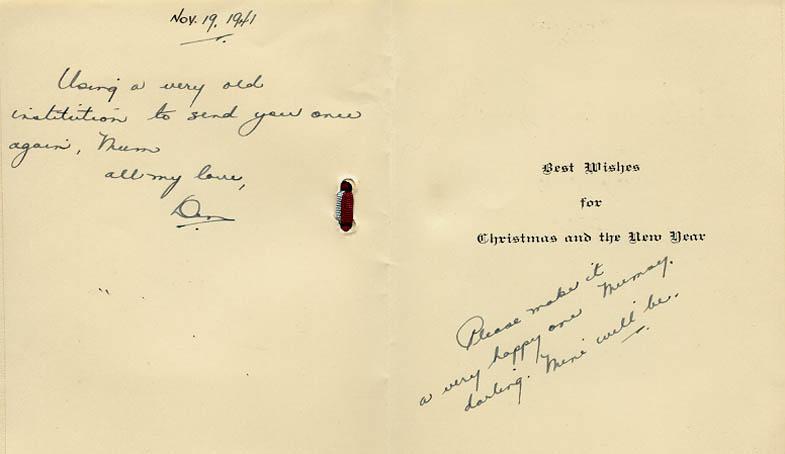 Nov. 19, 1941
Using a very old
institution to send you once
again, Mum
all my love,
Den
Best Wishes
for
Christmas and the New Year
Please make it
a very happy one Mumsy,
darling. Mine will be.